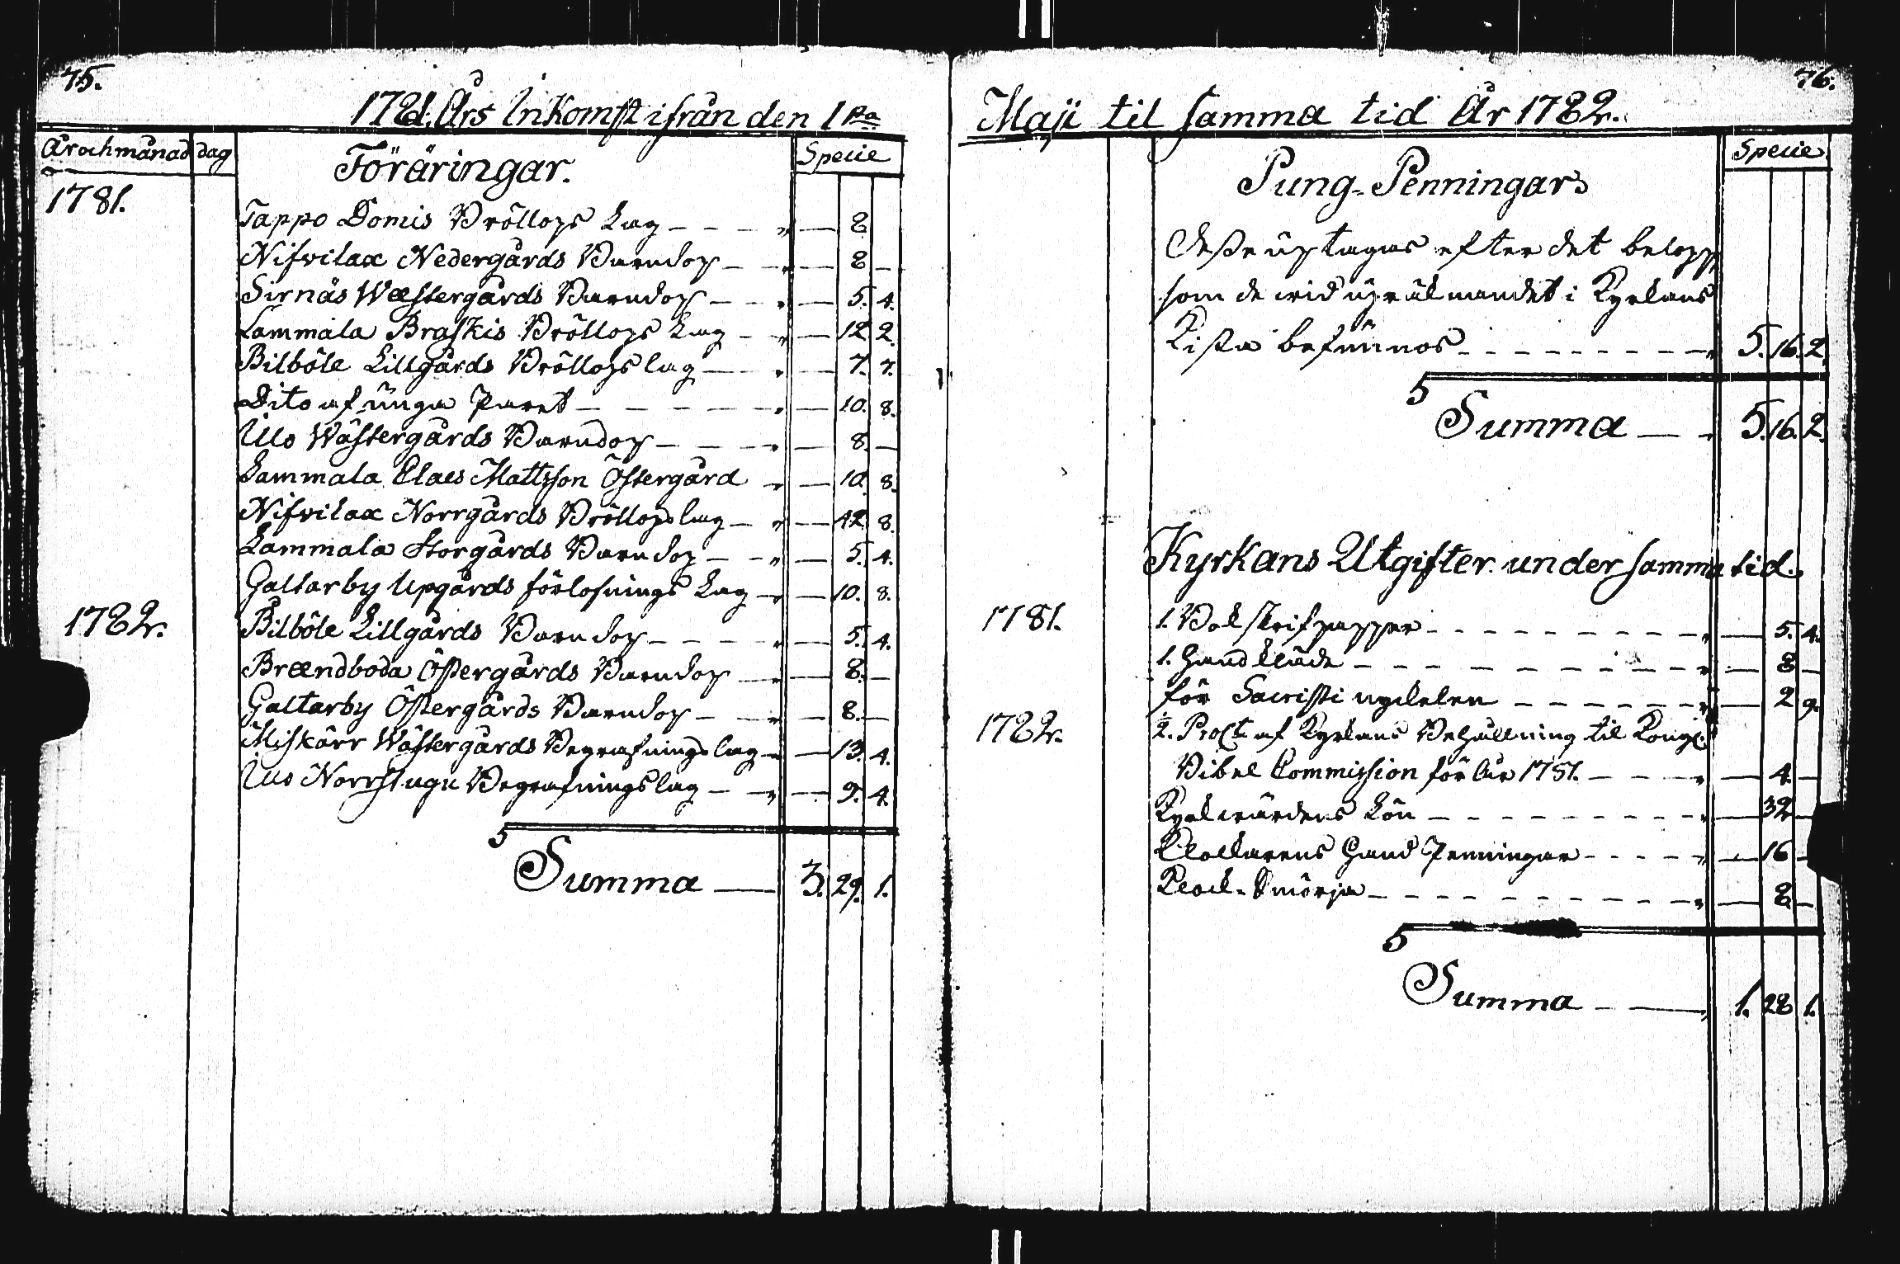 75.
1781. Års Inkomst ifrån den 1sta
År och månad dag
Föräringar.
Specie
1781.
Tappo Domis Bröllops Lag 8
Nifvilax Nedergårds Barndop 8
Sirnäs Wæstergårds Barndop 5. 4.
Lammala Braskis Bröllops Lag 12 2.
Bilböle Lillgårds Bröllopslag 7. 7.
Dito af unga Paret 10. 8.
Ulo Wästergårds Barndop 8
Lammala Claes Mattsson Östergård 10. 8.
Nifvilax Norrgårds Bröllopslag 12. 8.
Lammala Storgårds Barndop 5. 4.
Galtarby Upgårds förlofnings Lag 10. 8.
1782.
Bilböle Lillgårds Barndop 5. 4.
Brændboda Östergårds Barndop 8.
Galtarby Östergårds Barndop 8.
Miskärr Wästergårds Begrafningslag 13. 4.
Norrstugu Begrafningslag 9. 4.
Summa 3. 29. 1.
76.
Maji til samma tid År 1782.
Specie
Pung-Penningar
Desse uptagas efter det belopp
som de wid upräknandet i Kyrkans
Kista befunnos 5. 16. 2.
Summa 5. 16. 2.
Kyrkans Utgifter under samma tid.
1781.
1. Bok skrifpapper 5. 4.
1. Handkläde 8
för Sacristi nyckelen 2 9.
1782.
2. Proct. af Kyrkans Behållning til Kongl.
Bibel Commission för År 1781. 4.
Kyrkwärdens Lön 32
Klockarens Hand Penningar 16
Klock-Smörja 8.
Summa 1. 28 1.